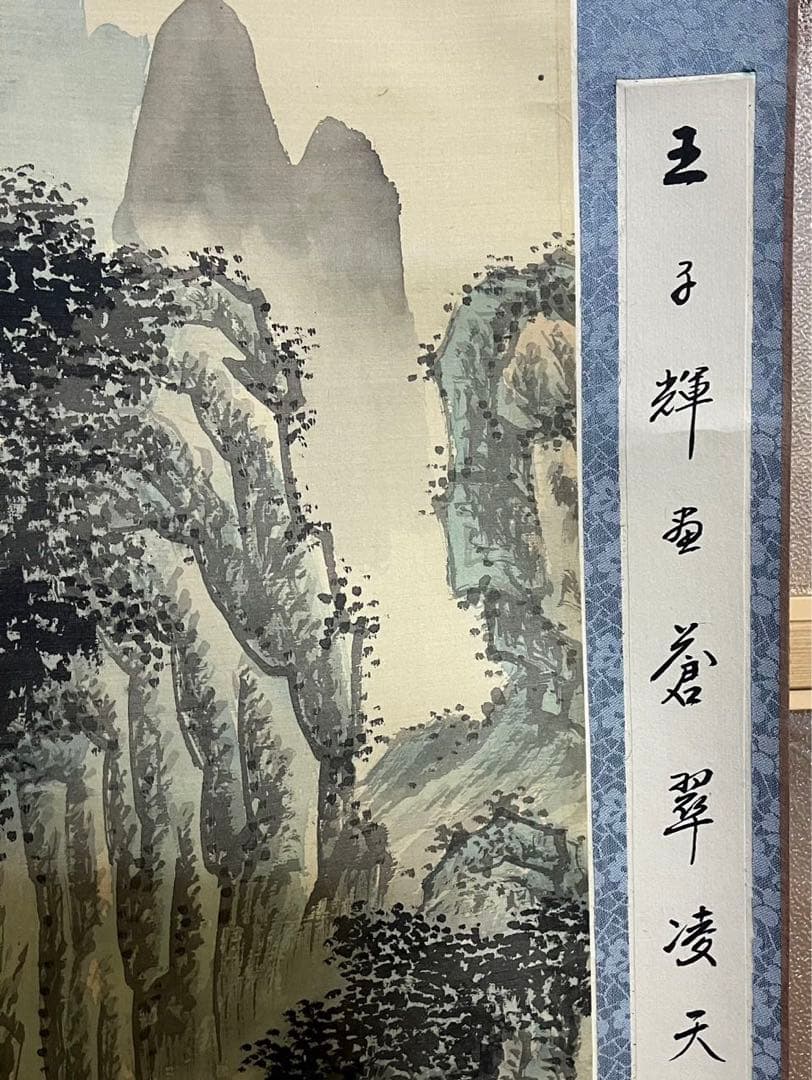 王子輝画蒼翠凌天